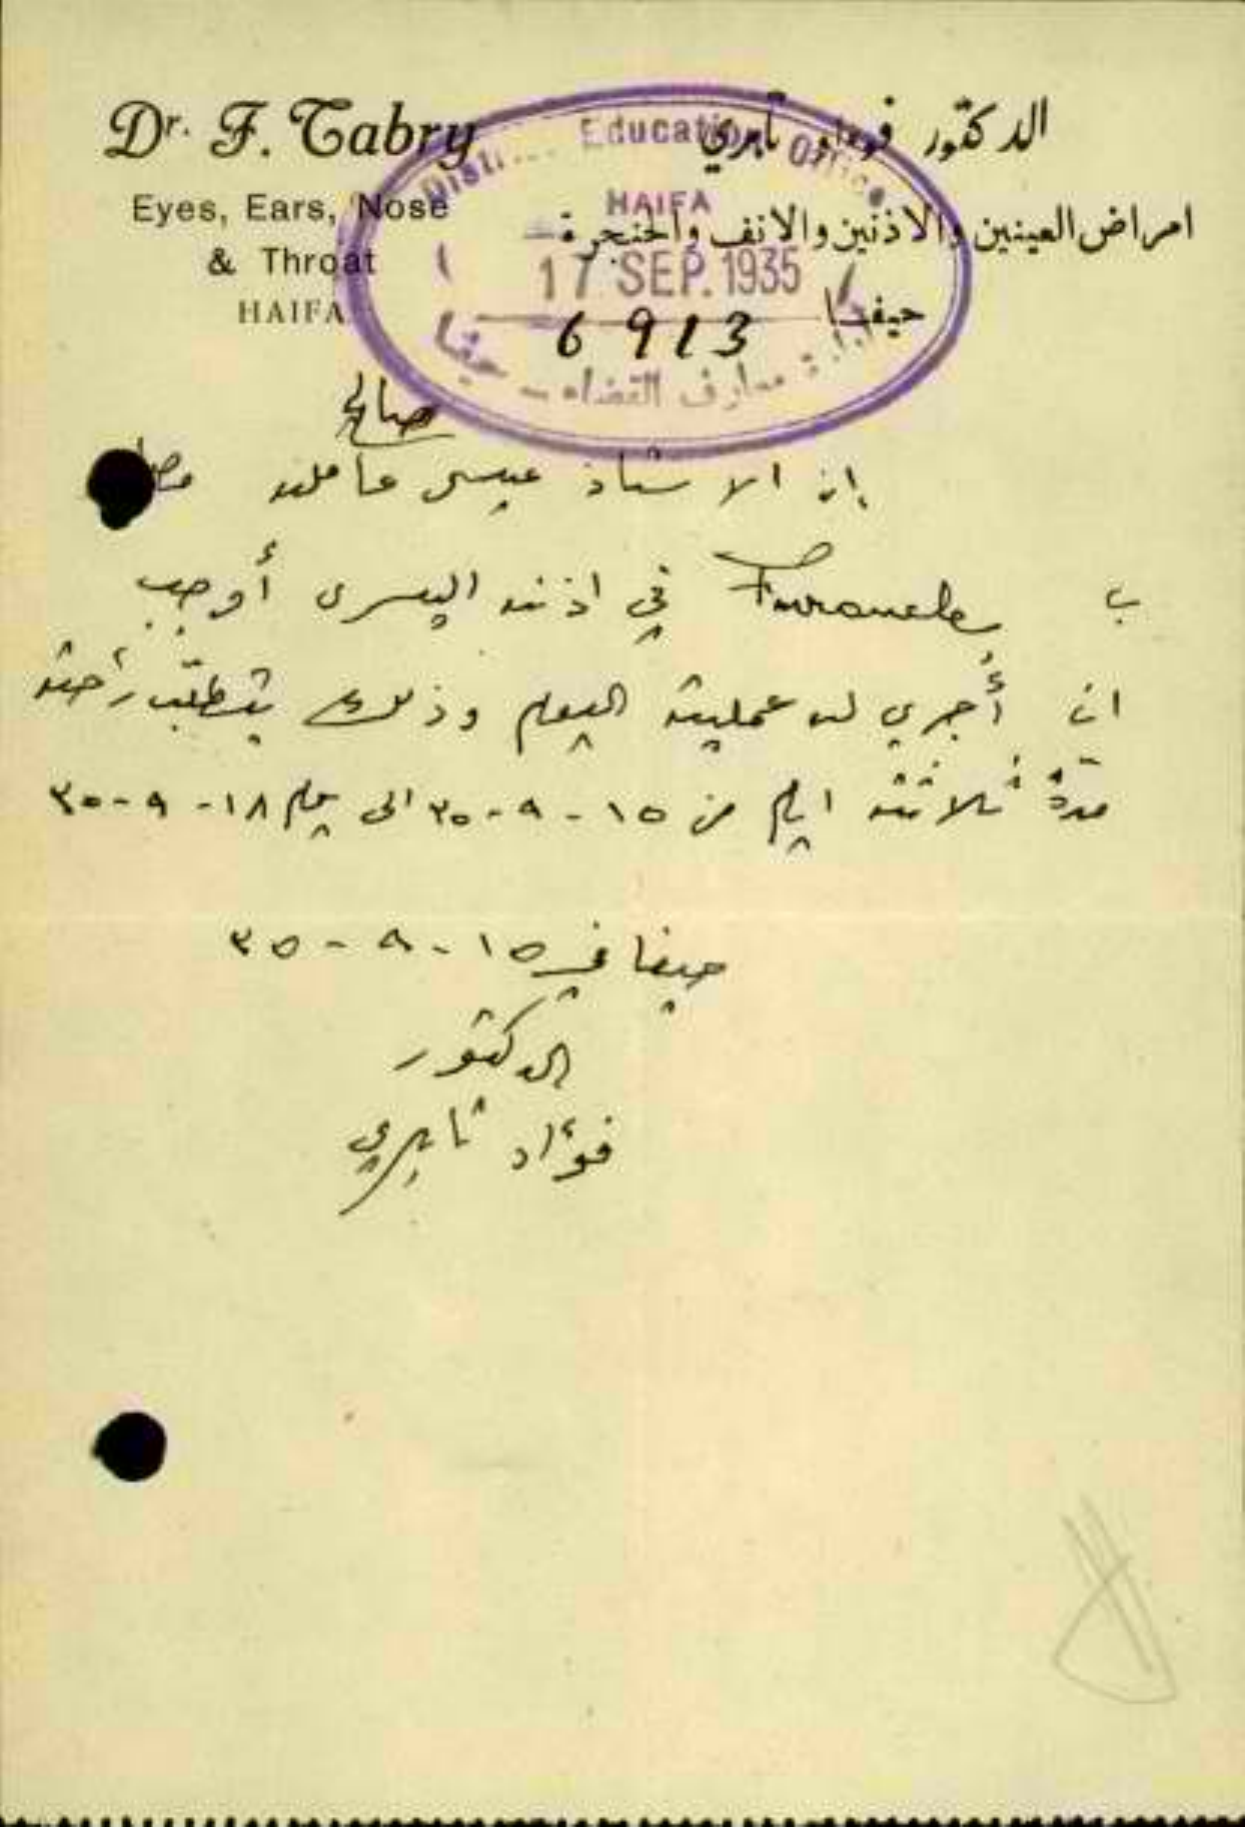 Dr. F. Tabry
الدكتور فؤاد تابري
Eyes, Ears, Nose
& Throat
HAIFA
امراض العينين والاذنين والانف والحنجرة
حيفا
Education Office
HAIFA
17 SEP. 1935
6913
معارف القضاء – حيفا
صالح
إن الاستاذ عيسى
ب Furoncle في اذنه اليسرى أوجب
ان أُجري له عملية اليوم وذلك يتطلّب راحته
مدّة ثلاثة ايام من ١٥-٩-٣٥ الى يوم ١٨-٩-٣٥
حيفا في ١٥-٩-٣٥
الدكتور
فؤاد تابري